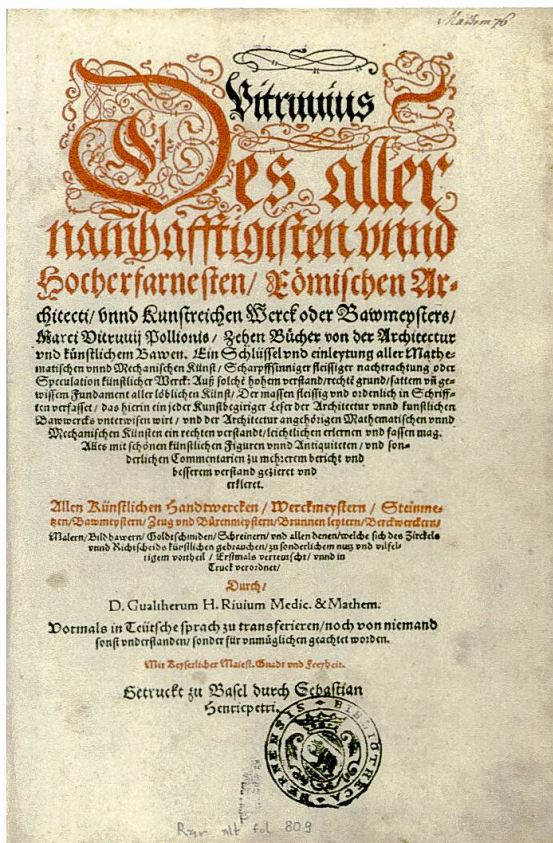 Mathem 76
Vitruuius
Des aller
namhafftigisten vnnd
Hocherfarnesten/ Römischen Ar-
chitecti/ vnnd Kunstreichen Werck oder Bawmeysters/
Marci Vitruuij Pollionis/ Zehen Bücher von der Architectur
vnd künstlichem Bawen. Ein Schlüssel vnd einleytung aller Mathe-
matischen vnnd Mechanischen Künst/ Scharpffsinniger fleissiger nachtrachtung oder
Speculation künstlicher Werck: Auß solchē hohem verstand/ rechtē grund/ sattem vñ ge-
wissem Fundament aller löblichen Künst/ Der massen fleissig vnd ordenlich in Schriff-
ten verfasset/ das hierin ein jeder Kunstbegiriger Leser der Architectur vnnd kunstlichen
Bawwercks vnterwisen wirt/ vnd der Architectur angehörigen Mathematischen vnnd
Mechanischen Künsten ein rechten verstandt/ leichtlichen erlernen vnd fassen mag.
Alles mit schönen künstlichen Figuren vnnd Antiquiteten/ vnd son-
derlichen Commentarien zu mehrerem bericht vnd
besserem verstand gezieret vnd
erkleret.
Allen Künstlichen Handtwercken/ Werckmeystern/ Steinme-
tzen/ Bawmeystern/ Zeug vnd Büxenmeystern/ Brunnen leytern/ Berckwerckern/
Malern/ Bildhawern/ Goldtschmiden/ Schreinern/ vnd allen denen/ welche sich des Zirckels
vnnd Richtscheids künstlichen gebrauchen/ zu sonderlichem nutz vnd vilfel-
tigem vortheil/ Erstmals verteutscht/ vnnd in
Truck verordnet/
Durch/
D. Gualtherum H. Riuium Medic. & Mathem.
Vormals in Teütsche sprach zu transferieren/ noch von niemand
sonst vnderstanden/ sonder für vnmüglichen geachtet worden.
Mit Keyserlicher Maiest. Gnadt vnd Freyheit.
Getruckt zu Basel durch Sebastian
Henricpetri.
BIBLIOTHECA BERNENSIS
Rar alt fol 809